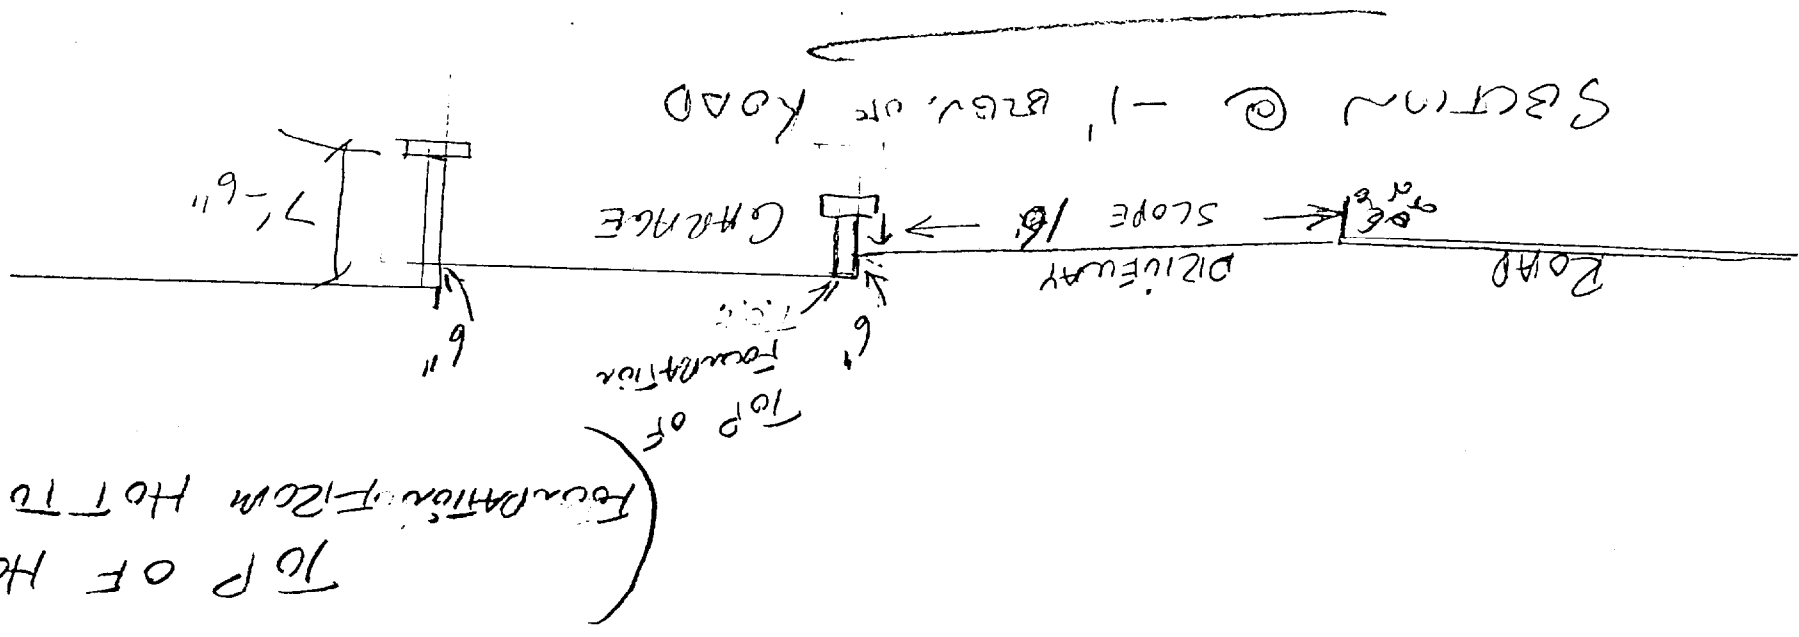 TOP OF HO
FOUNDATION FROM HOT TO
TOP OF
FOUNDATION
6'
6"
ROAD
DRIVEWAY
SLOPE
GARAGE
7'-6"
SECTION @ -1' ELEV. OF ROAD